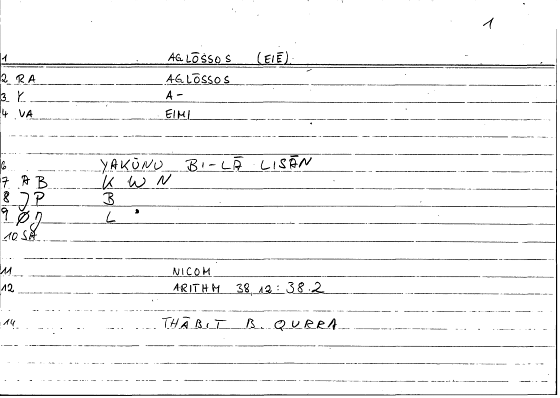 1
1 AGLŌSSOS (EIĒ)
2 RA AGLŌSSOS
3 Y A-
4 VA EIMI
6 YAKŪNU BI-LĀ LISĀN
7 AB K W N
8 JP B
9 L
10 SA
11 NICOM
12 ARITHM 38,12:38.2
14 THĀBIT B. QURRA